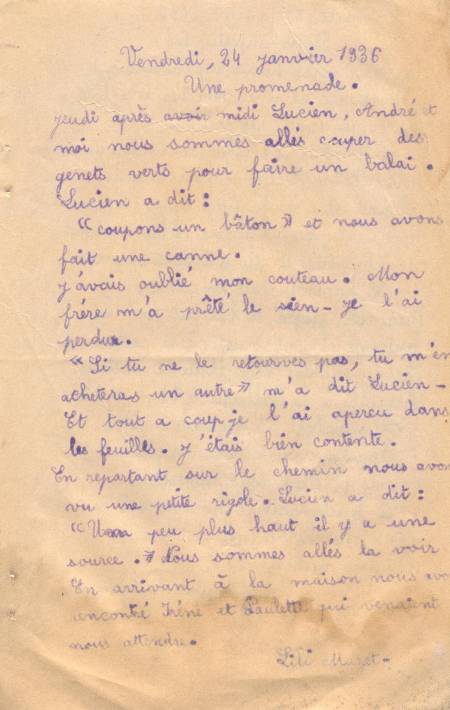 Vendredi, 24 janvier 1936
Une promenade.
jeudi après avoir midi Lucien, André et
moi nous sommes allés couper des
genets verts pour faire un balai.
Lucien a dit :
"coupons un bâton" et nous avons
fait une canne.
j'avais oublié mon couteau. Mon
frére m'a prêté le sien - je l'ai
perdue.
"Si tu ne le retourves pas, tu m'en
acheteras un autre" m'a dit Lucien -
Et tout a coup je l'ai apercu dans
les feuilles. j'étais bien contente.
En repartant sur le chemin nous avon
vu une petite rigole. Lucien a dit :
"Un peu plus haut il y a une
source." Nous sommes allés la voir
En arrivant à la maison nous avo
rencontré Iréne et Paulette qui venaient
nous attendre.
Lili Muzet -